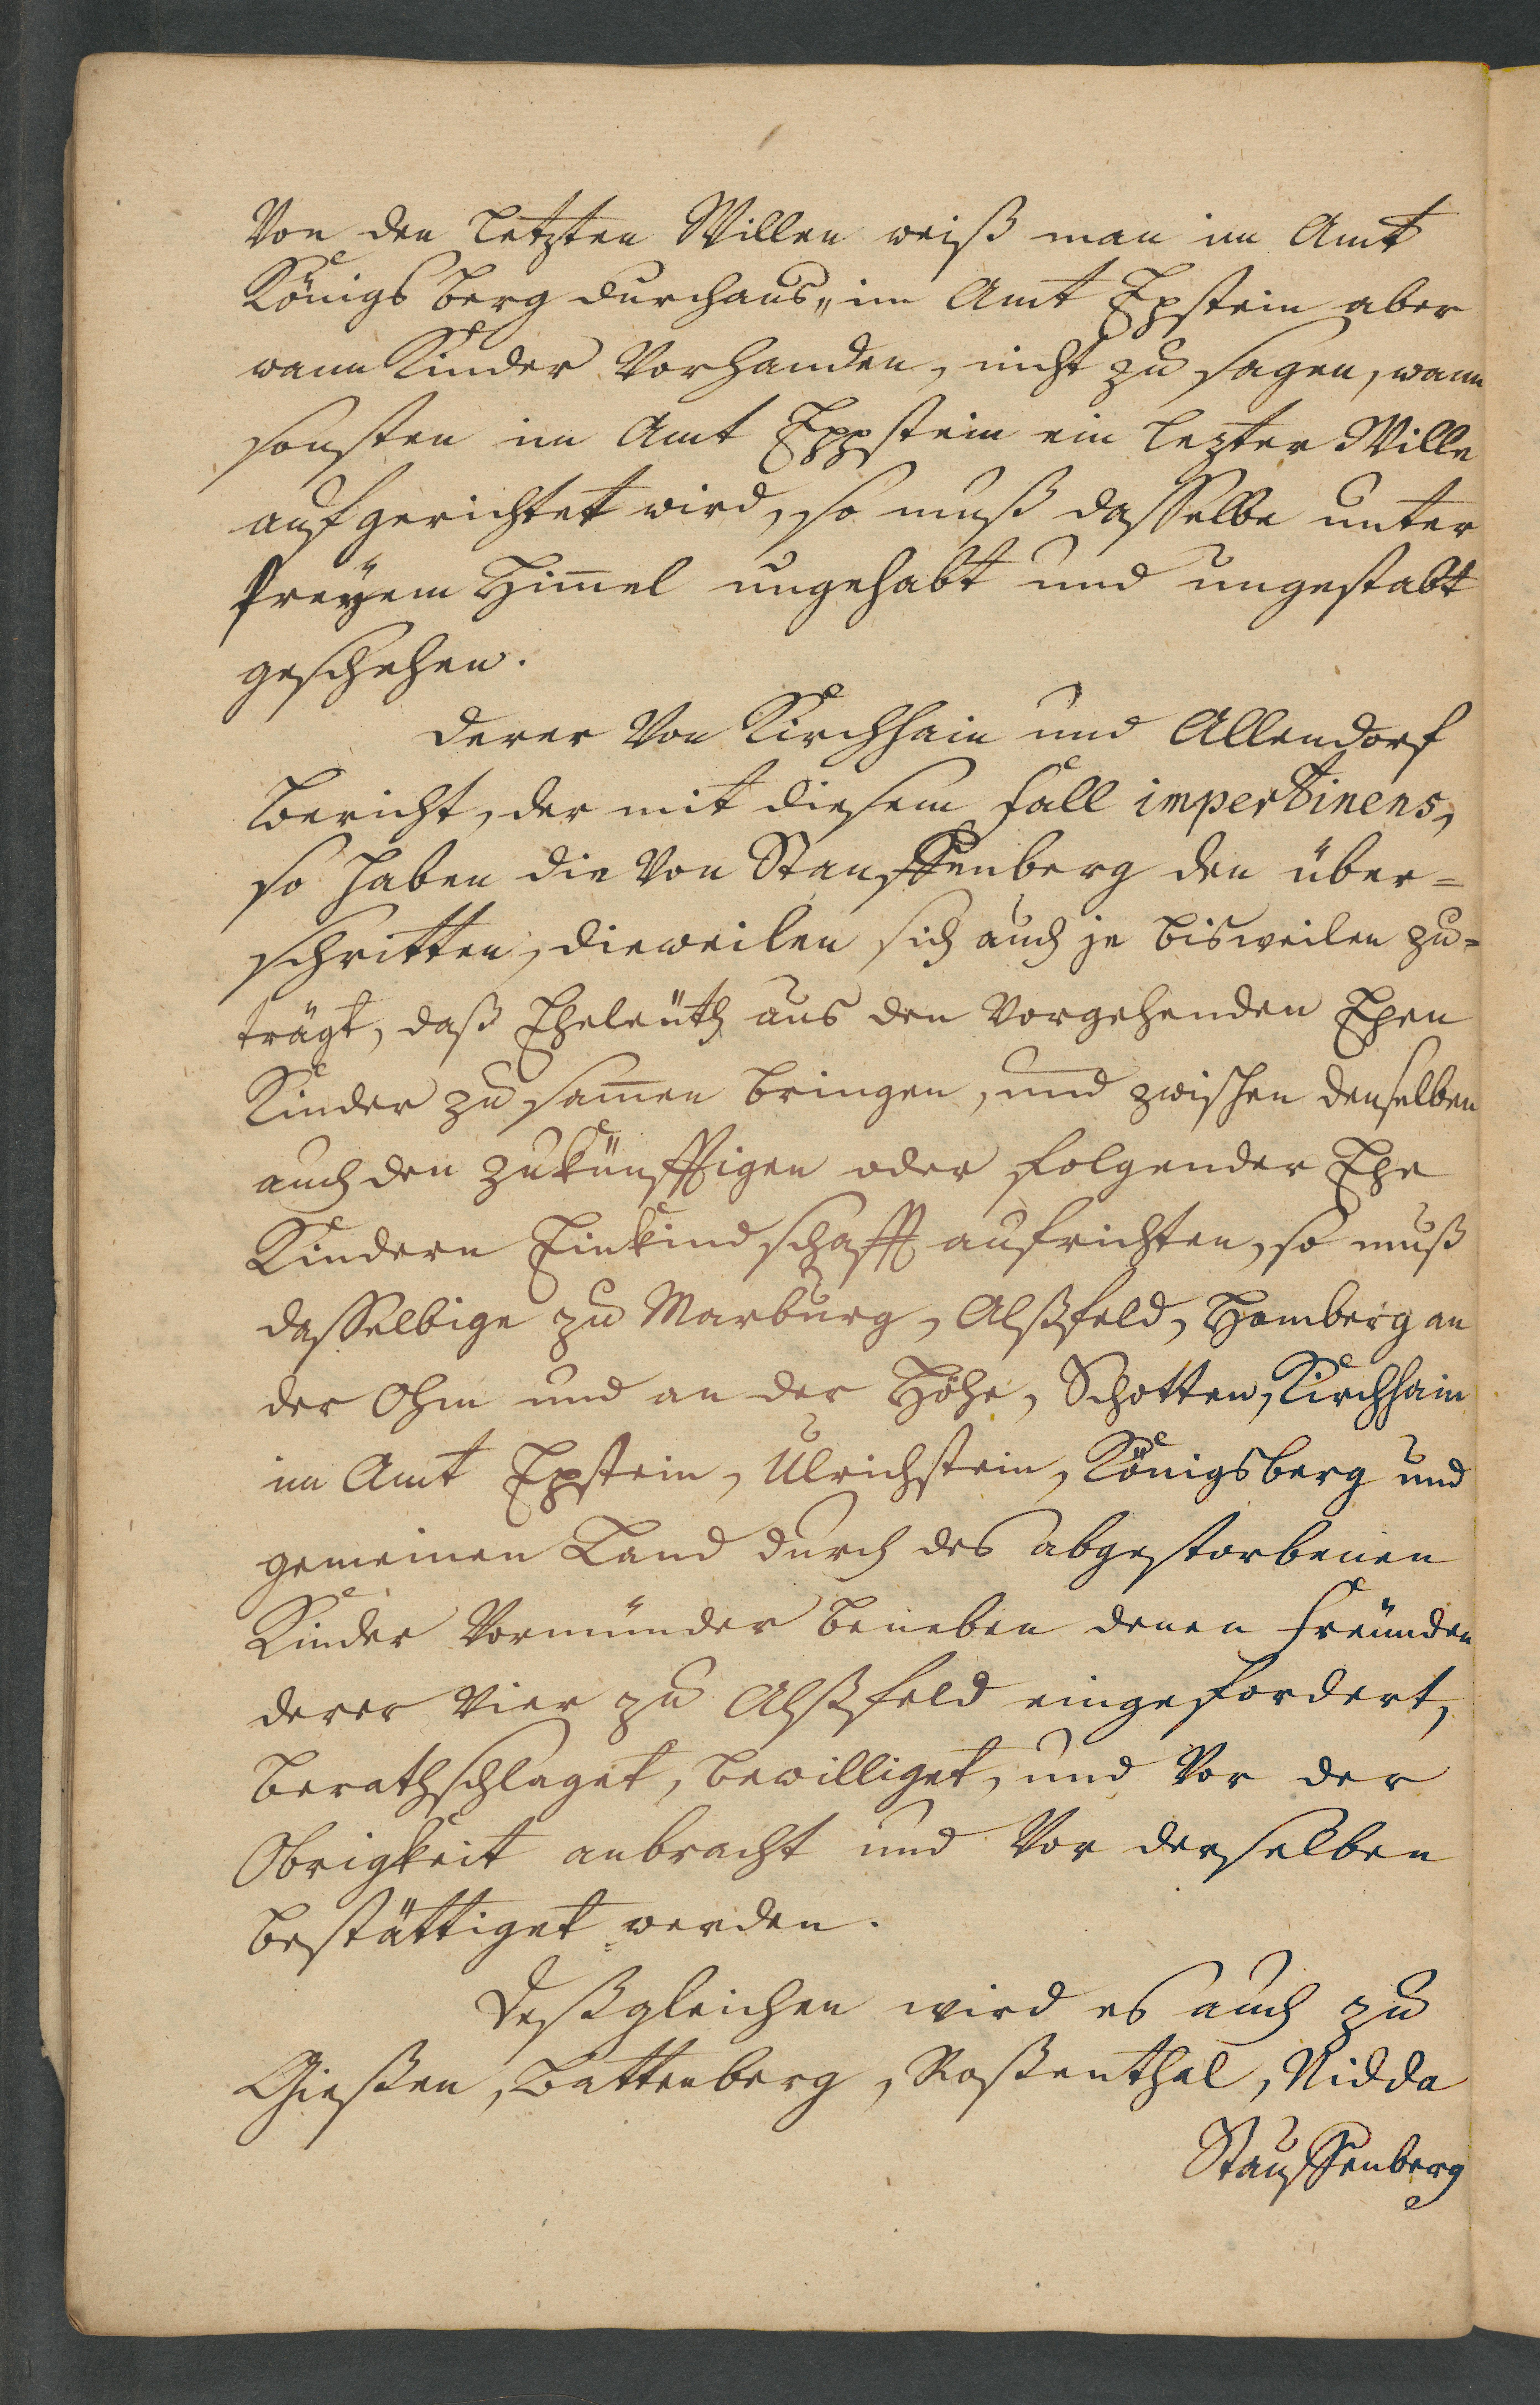 Von den Letzten Willen weiß man im Amt
Königs berg durchaus„ im Amt Epstein aber
wann Kinder Vorhanden, nicht zu sagen, wann
sonsten im Amt Eppstein ein lezter Wille
aufgerichtet wird, so muß dasselbe unter
freÿem Him̅el ungehabt und ungestabt
geschehen.
Derer Von Kirchhain und Allendorf
Bericht, der mit diesem Fall impertinens,
so haben die Von Stauffenberg den über=
schritten, dieweilen sich auch je bisweilen zu=
trägt, daß Eheleüth aus den Vorgehenden Ehen
Kinder zu sam̅en bringen, und zwischen denselben
auch den zukünfftigen oder folgender Ehe
Kindern Einkindschafft aufrichten, so muß
dasselbige zu Marburg, Alßfeld, Homberg an
der Ohm und an der Höhe, Schotten, Kirchhain
im Amt Epstein, Ulrichstein, Königsberg und
gemeinen Land durch des abgestorbenen
Kinder Vormünder beneben denen Freünden
derer Vier zu Alßfeld eingefordert,
berathschlaget, bewilliget, und Vor der
Obrigkeit anbracht und Vor derselben
bestättiget werden.
Deßgleichen wird es auch zu
Gießen, Battenberg, Roßenthal, Nidda
Stauffenberg